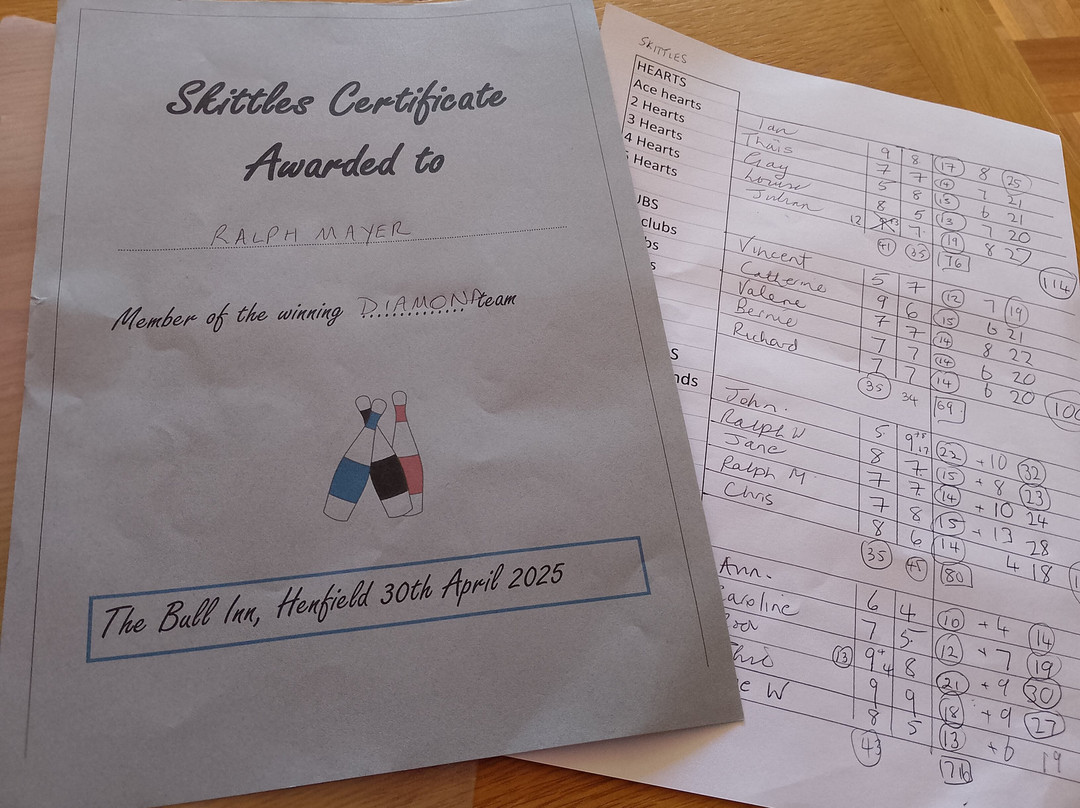 Skittles Certificate
Awarded to
RALPH MAYER
Member of the winning DIAMOND team
The Bull Inn, Henfield 30th April 2025
SKITTLES
HEARTS
Ace hearts
2 Hearts
3 Hearts
4 Hearts
Hearts
Ian 9 8 17 8 25
Thais 7 7 14 7 21
Gay 5 8 13 6 21
Louise 8 5 13 7 20
Julian 12 7 19 8 27
41 35 76 114
UBS
clubs
bs
s
Vincent 5 7 12 7 19
Catherine 9 6 15 6 21
Valerie 7 7 14 8 22
Bernie 7 7 14 6 20
Richard 7 7 14 6 20
35 34 69
s
nds
John. 5 9 22 +10 32
Ralph W 8 7 15 +8 23
Jane 7 7 14 +10 24
Ralph M. 7 8 15 +13 28
Chris 8 6 14 4 18
35 45 80
Ann. 6 4 10 +4 14
Caroline 7 5 12 +7 19
13 9+4 8 21 +9 30
9 9 18 +9 27
e W 8 5 13 +6 19
43